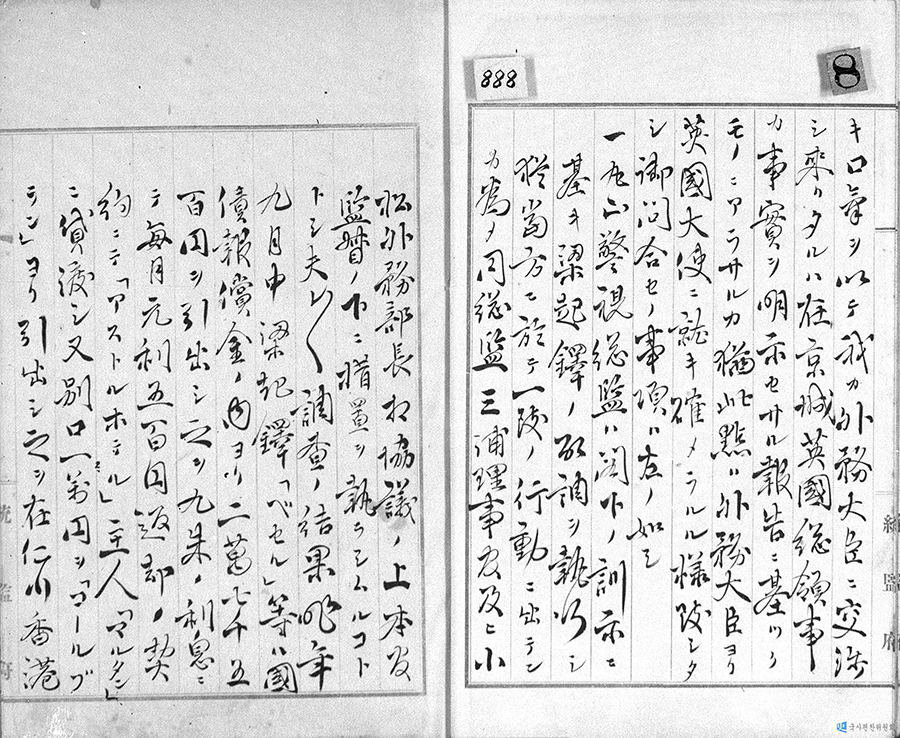 888
8
キ口氣ヲ以テ我カ外務大臣ニ交渉
シ來リタルハ在京城英國総領事
カ事實ヲ明示セサル報告ニ基ツク
モノニアラサルカ猶此點ハ外務大臣ヨリ
英國大使ニ就キ確メラルル様致シタ
シ御問合セノ事項ハ左ノ如シ
一丸山警視総監ハ閣下ノ訓示ニ
基キ梁起鐸ノ取調ヲ執行シ
猶當方ニ於テ一致ノ行動ニ出テン
カ為メ同総監三浦理事官及ヒ小
松外務部長相協議ノ上本官
監督ノ下ニ措置ヲ執ラシムルコト
トシ夫レ〱調査ノ結果昨年
九月中梁起鐸「ベセル」等ハ國
債報償金ノ内ヨリ二萬七千五
百円ヲ引出シ之ヲ九朱ノ利息ニ
テ毎月元利五百円返却ノ契
約ニテ「アストルホテル」主人「マルタン」
ニ貸渡シ又別口一萬円ヲ「コールブ
ラン」ヨリ引出シ之ヲ在仁川香港
統監府
統監府
국사편찬위원회